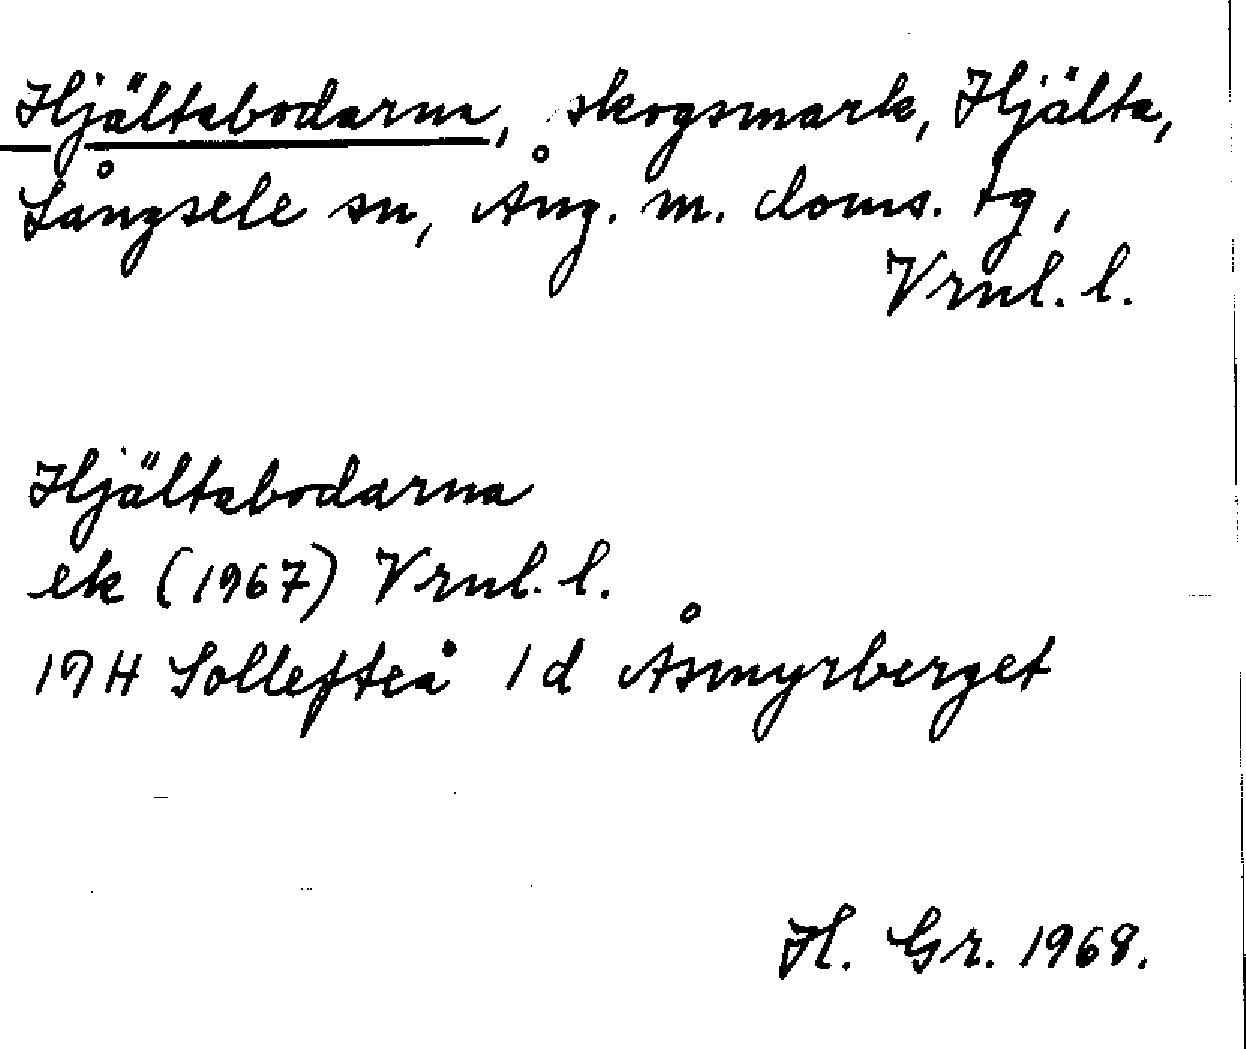 Hjältabodarna, skogsmark, Hjälta,
Långsele sn, Ång. m. doms. tg,
Vrnl. l.
Hjältabodarna
ek (1967) Vrnl. l.
19H Sollefteå 1d Åsmyrberget
H. Gr. 1968.